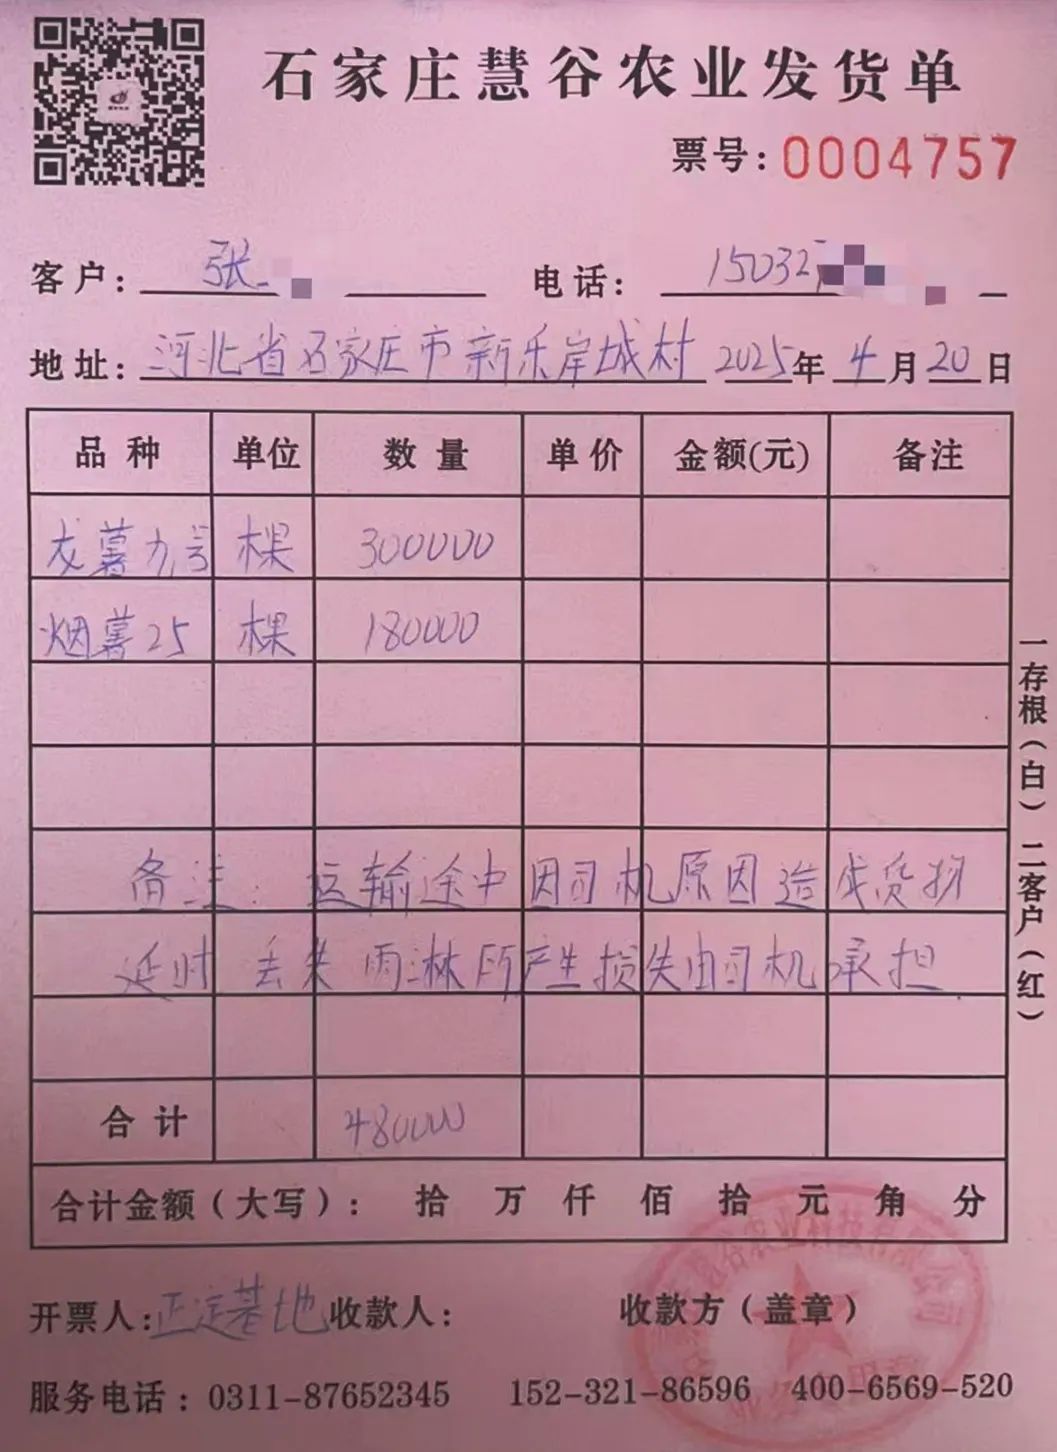 石家庄慧谷农业发货单
票号：0004757
客户：张 电话：15032
地址：河北省石家庄市新乐岸城村 2025年4月20日
品种 单位 数量 单价 金额(元) 备注
龙薯九号 棵 300000
烟薯25 棵 180000
备注：运输途中因司机原因造成货物
延时 丢失 雨淋所产生损失由司机承担.
合计 480000
合计金额（大写）： 拾 万 仟 佰 拾 元 角 分
开票人：正定基地 收款人： 收款方（盖章）
服务电话：0311-87652345 152-321-86596 400-6569-520
一存根（白）二客户（红）
慧谷农业科技有限公司